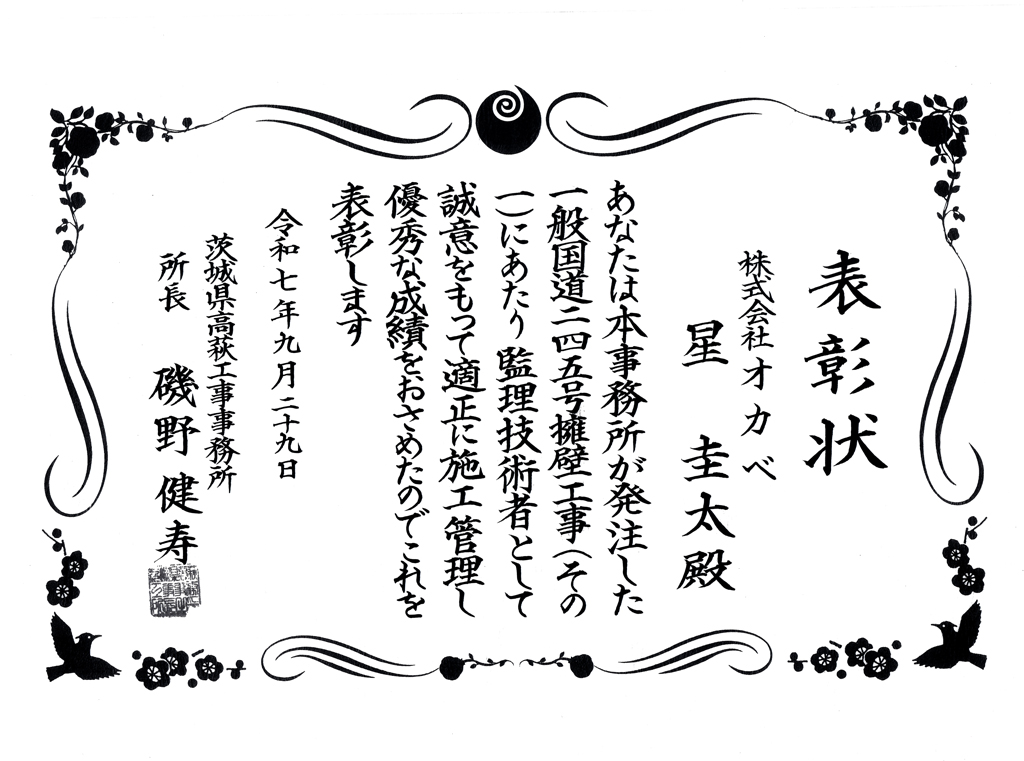 表彰状
株式会社オカベ
星 圭太殿
あなたは本事務所が発注した
一般国道二四五号擁壁工事(その
一)にあたり監理技術者として
誠意をもって適正に施工管理し
優秀な成績をおさめたのでこれを
表彰します
令和七年九月二十九日
茨城県高萩工事事務所
所長 磯野健寿